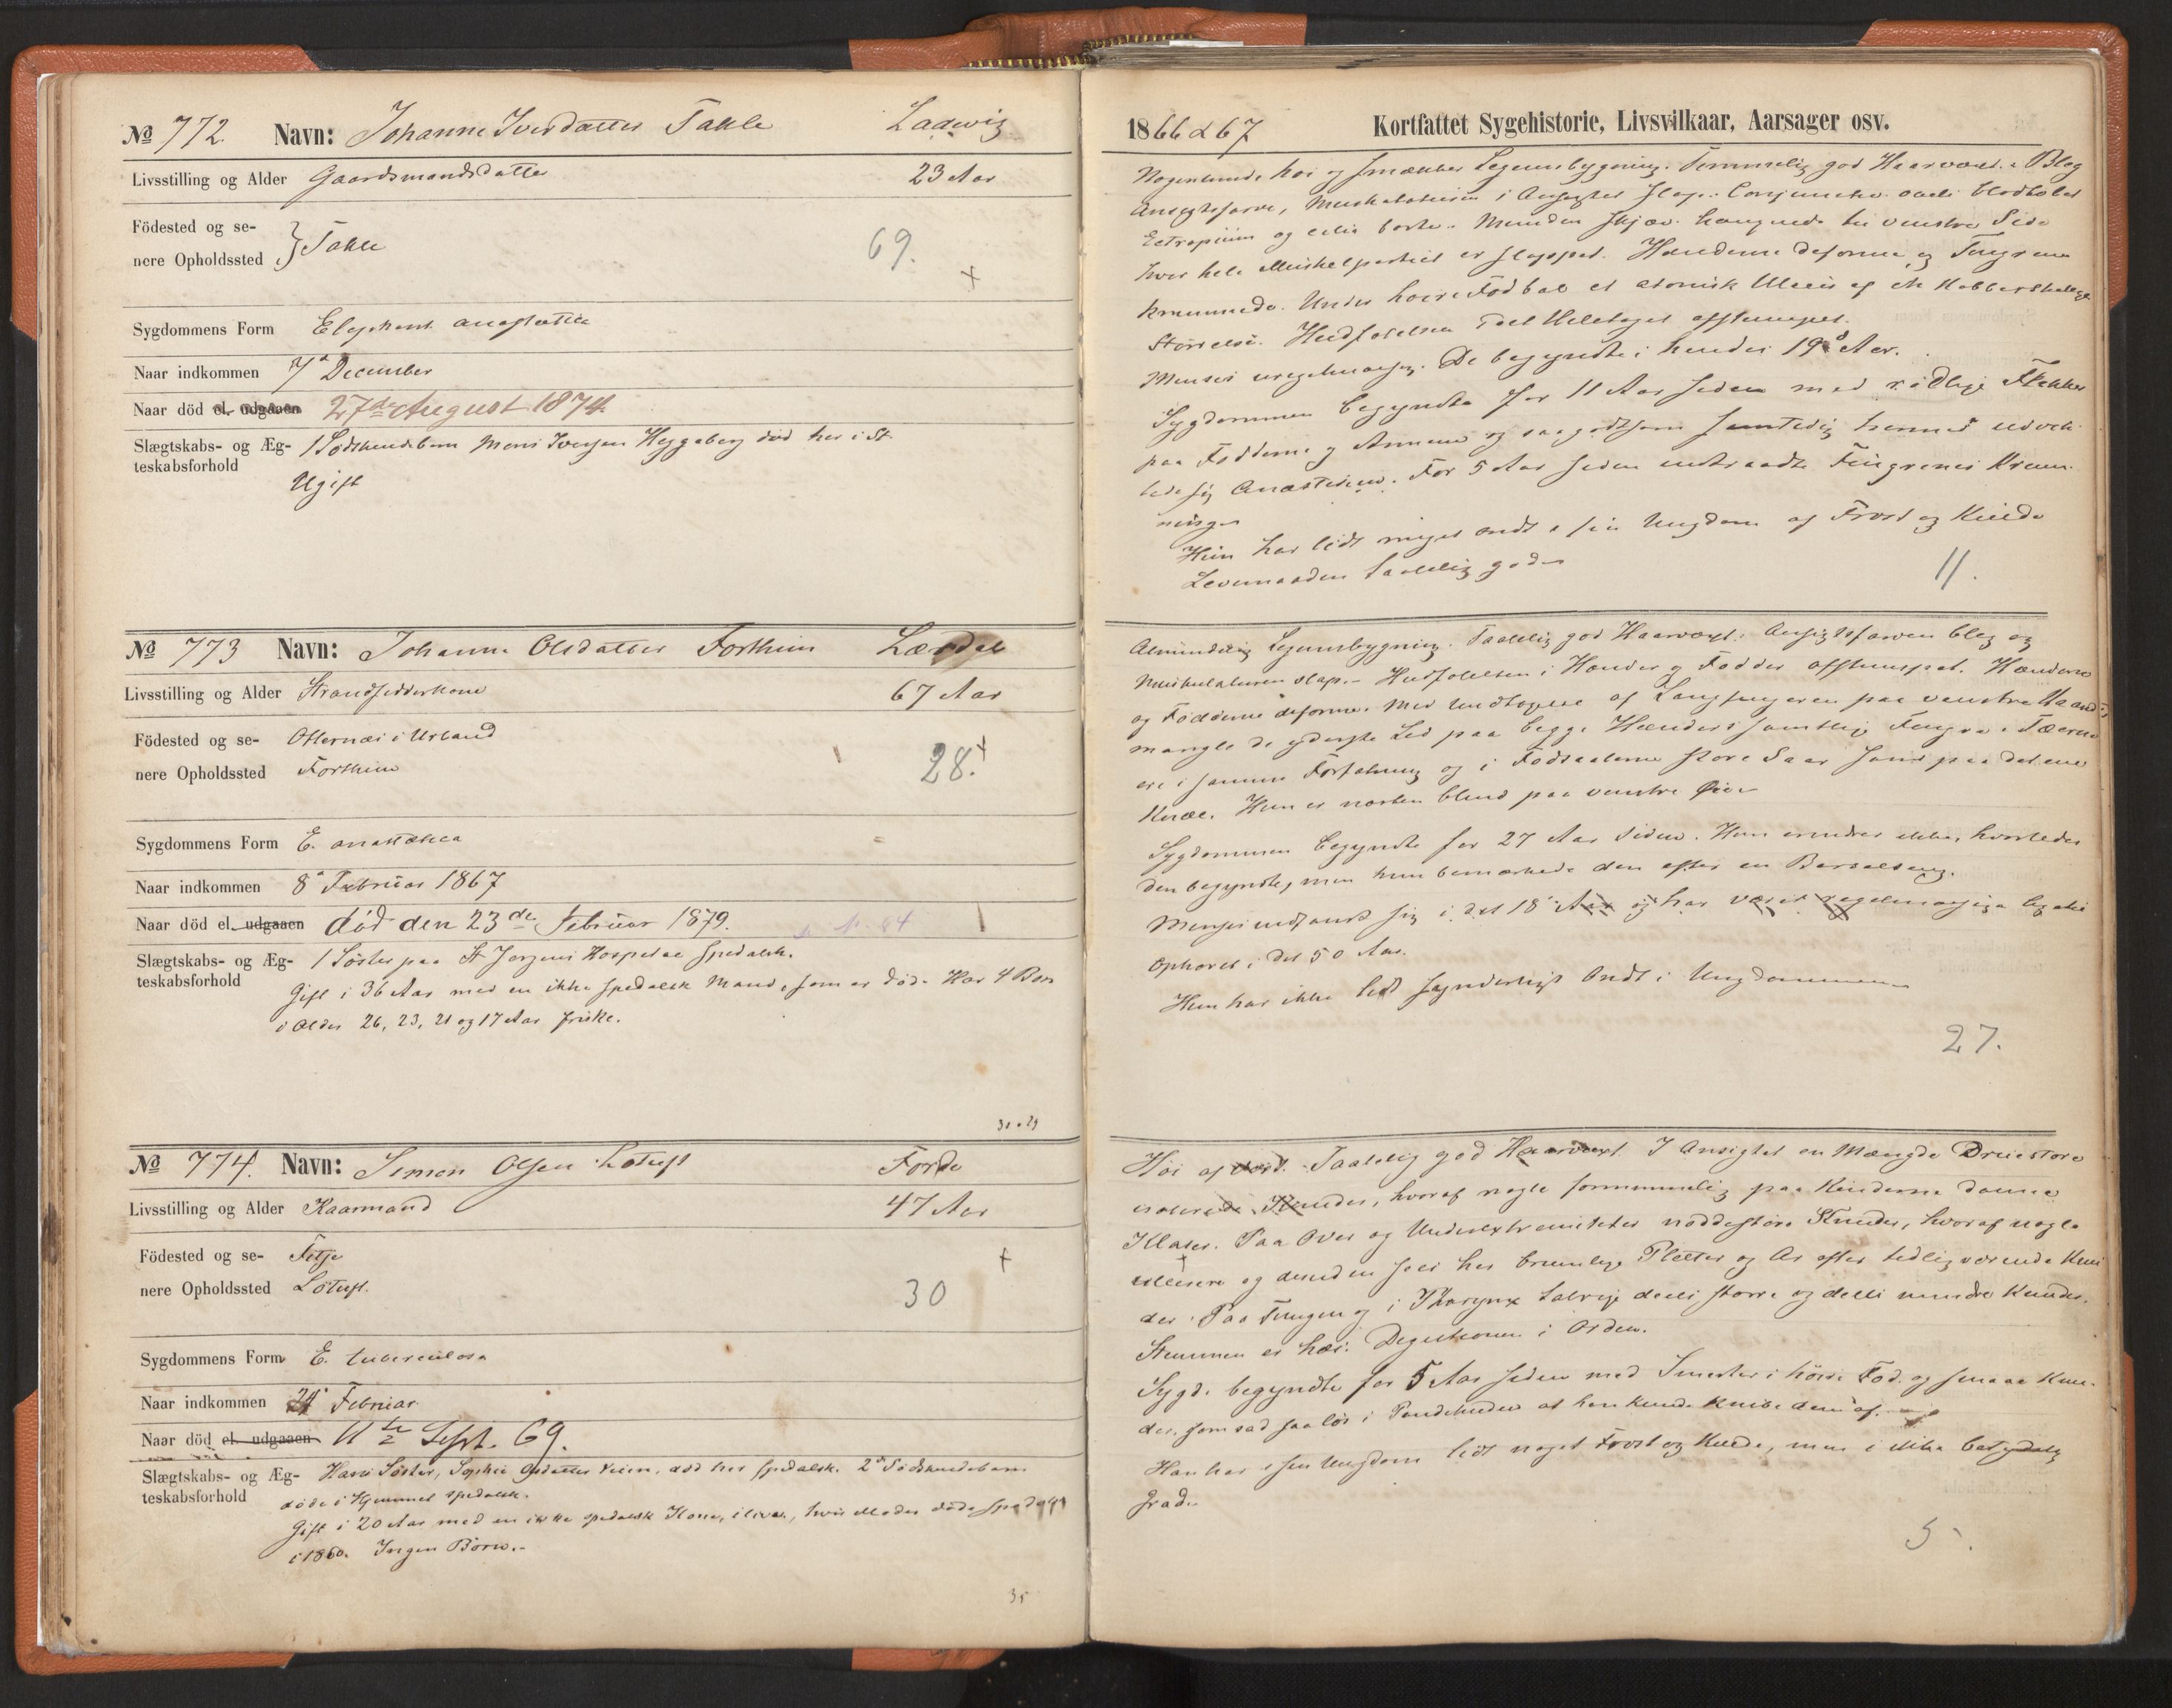 № 772. Navn: Johanne Iversdatter Takle Ladwig
Livsstilling og Alder Gaardsmandsdatter 23 Aar
Födested og se-
nere Opholdssted } Takle 69. +
Sygdommens Form Elephant. anæsthetica
Naar indkommen 7d December
Naar död el. udgaaen 27de August 1874.
Slægtskabs- og Æg-
teskabsforhold
1 Södskendebarn Mons Iversen Heggeberg död her i St.
Ugift
№ 773 Navn: Johanna Olsdatter Forthun Lærdal
Livsstilling og Alder Strandsidderkone 67 Aar
Födested og se- Otternæs i Urland
nere Opholdssted Forthun 28. +
Sygdommens Form E. anæsthetica
Naar indkommen 8d Februar 1867
Naar död el. udgaaen död den 23de Februar 1879.
Slægtskabs- og Æg-
teskabsforhold
1 Söster paa St Jørgens Hospital spedalsk.
Gift i 36 Aar med en ikke spedalsk Mand, som er död. Har 4 Børn
i Alder 26, 23, 21 og 17 Aar friske.
№ 774. Navn: Simon Olsen Løtuft Førde
Livsstilling og Alder Kaarmand 47 Aar
Födested og se- Fitje +
nere Opholdssted Løtuft. 30
Sygdommens Form E. tuberculosa
Naar indkommen 24 Februar
Naar död el. udgaaen 11te Sept. 69.
Slægtskabs- og Æg-
teskabsforhold
Hans Söster, Sophie Olsdatter Veien, död her spedalsk. 2 Södskendebarn
döde i Hjemmet spedalsk.
Gift i 20 Aar med en ikke spedalsk Kone, i live, hvis Moder döde spedalsk
i 1860. Ingen Børn.
35
1866 & 67 Kortfattet Sygehistorie, Livsvilkaar, Aarsager osv.
Nogenlunde høi og smækker Legemsbygning. Temmelig god Haarvæxt. Bleg
Ansigtsfarve, Muskulaturen i Ansigtet slap. Conjunctiva
Ectropium og cilia borte. Munden skjæv hængende til venstre Side
hvor hele Muskelpartiet er slappet. Hænderne deforme og Fingrene
krummede. Under høire Fodbal et atonisk Ulcus af en Kobberskillings
Størrelse. Hudfølelsen i det Heletaget afstumpet.
Menses uregelmæssig. De begyndte i hendes 19d Aar.
Sygdommen begyndte for 11 Aar siden med rødlige Flekker
paa Fødderne og Armene og saagodtsom samtidig hermed udvik-
lede sig Anæsthesien. For 5 Aar siden indtraadte Fingrenes Krum-
ninger
Hun har lidt meget ondt i sin Ungdom af Frost og Kulde
Levemaaden taalelig god
11.
Almindelig Legemsbygning. Taalelig god Haarvæxt. Ansigtsfarven bleg og
Muskulaturen slap. Hudfølelsen i Hænder og Fødder afstumpet. Hænderne
og Fødderne deforme. Med Undtagelse af Langfingeren paa venstre Haand
mangle de yderste Led paa begge Hænders samtlige Fingre. Tæerne
ere i samme Forfatning og i Fodsaalerne store Saar samt paa det ene
Knæe. Hun er næsten blind paa venstre Øie
Sygdommen begyndte for 27 Aar siden. Hun erindrer ikke, hvorledes
den begyndte, men hun bemærkede den efter en Barselseng.
Menses indfandt sig i det 18 Aar og har været regelmæssige
Ophøret i det 50 Aar.
Hun har ikke lidt synderligt Ondt i Ungdommen
27.
Høi af Taalelig god Haarvæxt. I Ansigtet en Mængde Druestore
isolerede Knuder, hvoraf nogle fornemmelig paa Kinderne danne
Klaser. Paa Over og Underextremiteter nøddestore Knuder, hvoraf nogle
ulcerere og desuden sees her brunlige Pletter og Ar efter tidlig værende Knu-
der. Paa Tungen og i Pharynx talrige deels større og deels mindre Knuder.
Stemmen er hæs. Digestionen i Orden.
Sygd. begyndte for 5 Aar siden med Smerter i høire Fod og smaa Knu-
der, som sad saa løs i Pandehuden at han kunde knibe dem af.
Han har i sin Ungdom lidt noget Frost og Kulde, men i ikke betydelig
Grad.
5.